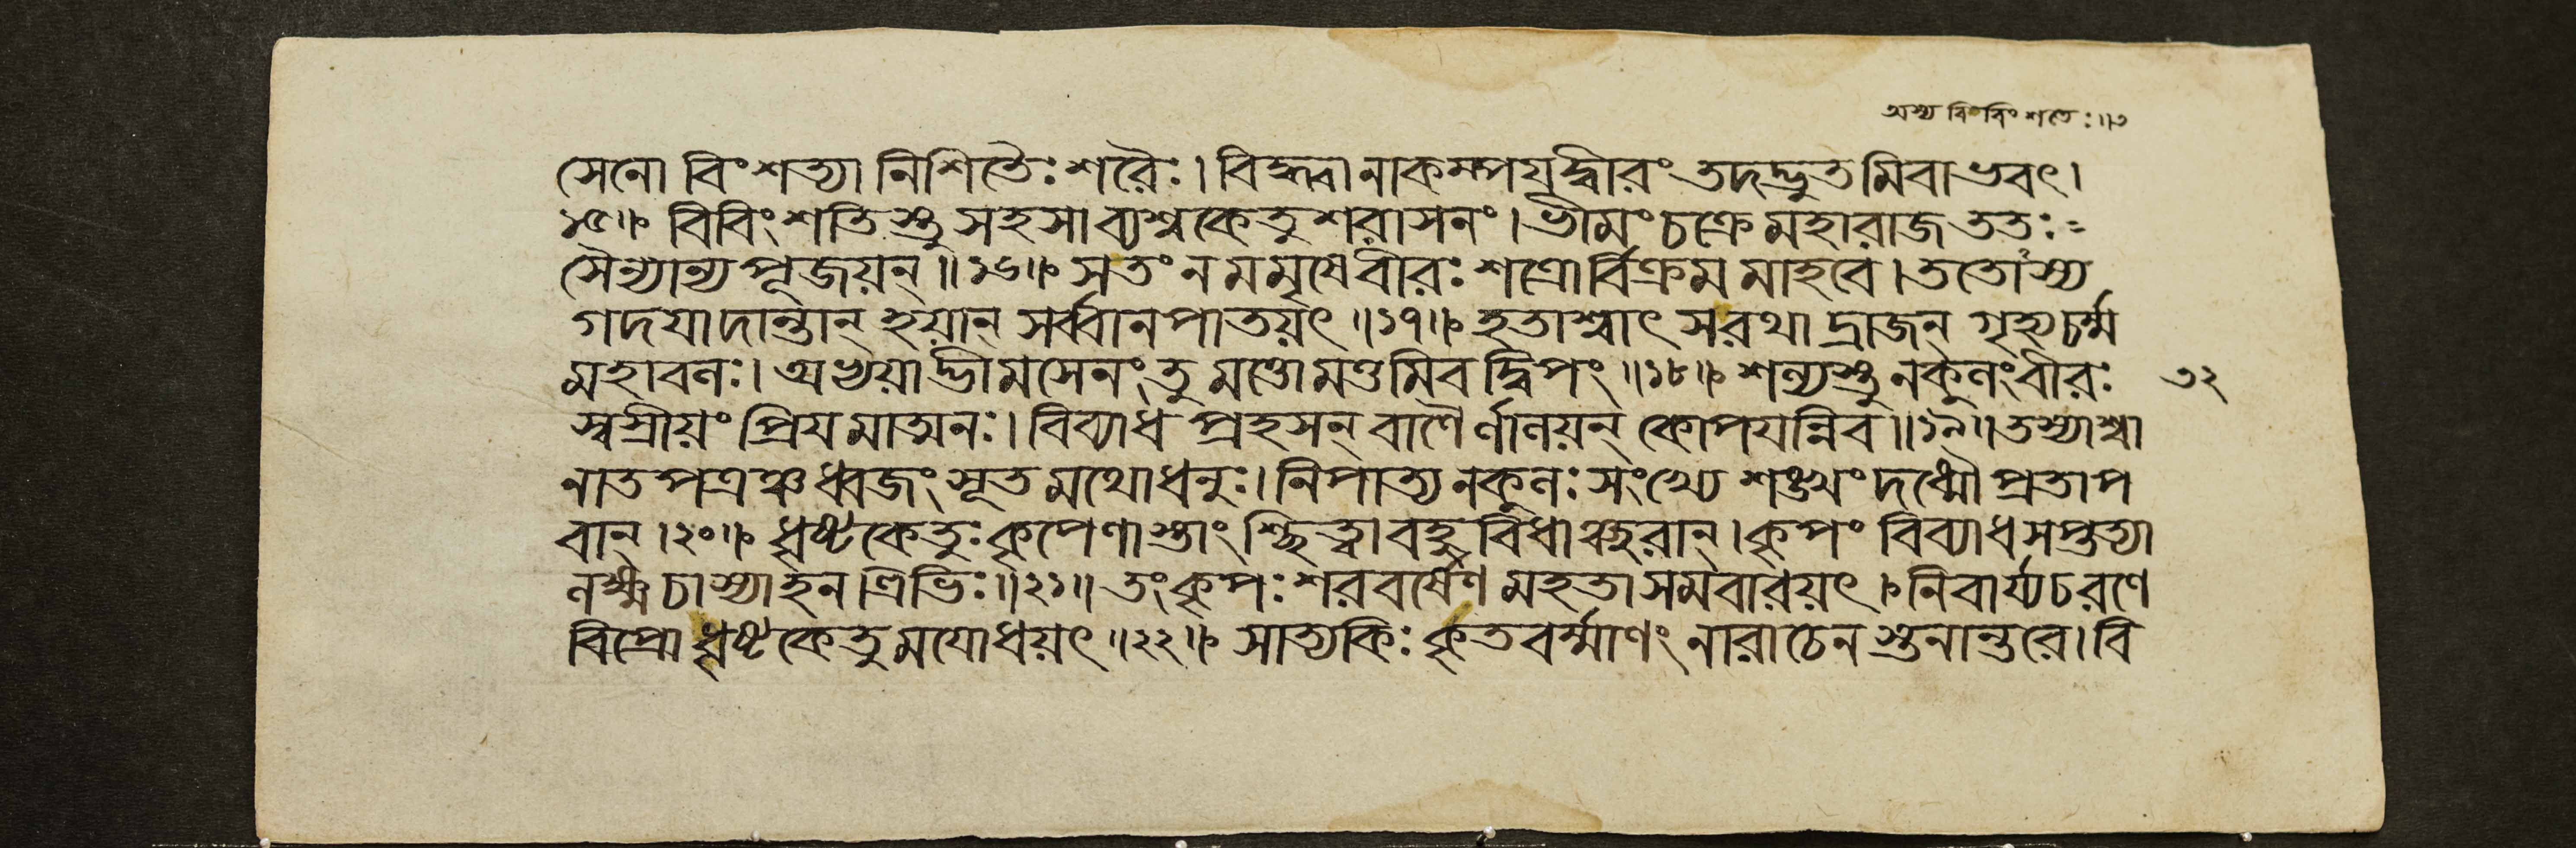 অস্য বিংবিংশতেঃ॥১
সেনো বিংশত্যা নিশিতৈঃ শরৈঃ। বিদ্ধ্বা নাকম্পযদ্বীরং তদদ্ভুতমিবাভবৎ।
১৫॥ বিবিংশতিস্তু সহসা ব্যশ্বকেতুশরাসনং। ভীমং চক্রে মহারাজ ততঃ
সৈন্যান্যপূজয়ন্॥১৬॥ স তং ন মমৃষে বীরঃ শত্রোর্বিক্রমমাহবে। ততোঽস্য
গদযা দান্তান্ হয়ান্ সর্ব্বানপাতয়ৎ॥১৭॥ হতাশ্বাৎ স রথাদ্রাজন্ গৃহ্য চর্ম্ম
মহাবলঃ। অভ্যয়াদ্ভীমসেনং তু মত্তো মত্তমিব দ্বিপং॥১৮॥ শল্যস্তু নকুলং বীরঃ
৩২
স্বস্রীয়ং প্রিযমাত্মনঃ। বিব্যাধ প্রহসন্ বাণৈর্লালয়ন্ কোপযন্নিব॥১৯॥ তস্যাশ্বা
নাতপত্রঞ্চ ধ্বজং সূতমথো ধনুঃ। নিপাত্য নকুলঃ সংখ্যে শঙ্খং দধ্মৌ প্রতাপ
বান্।২০॥ ধৃষ্টকেতুঃ কৃপেণাস্তাংশ্ছিত্বা বহুবিধাঞ্ছরান্। কৃপং বিব্যাধ সপ্তত্যা
লক্ষ্ম চাস্যাহনত্ত্রিভিঃ॥২১॥ তং কৃপঃ শরবর্ষেণ মহতা সমবারয়ৎ। নিবার্য্য চ রণে
বিপ্রো ধৃষ্টকেতুমযোধয়ৎ॥২২॥ সাত্যকিঃ কৃতবর্ম্মাণং নারাচেন স্তনান্তরে। বি